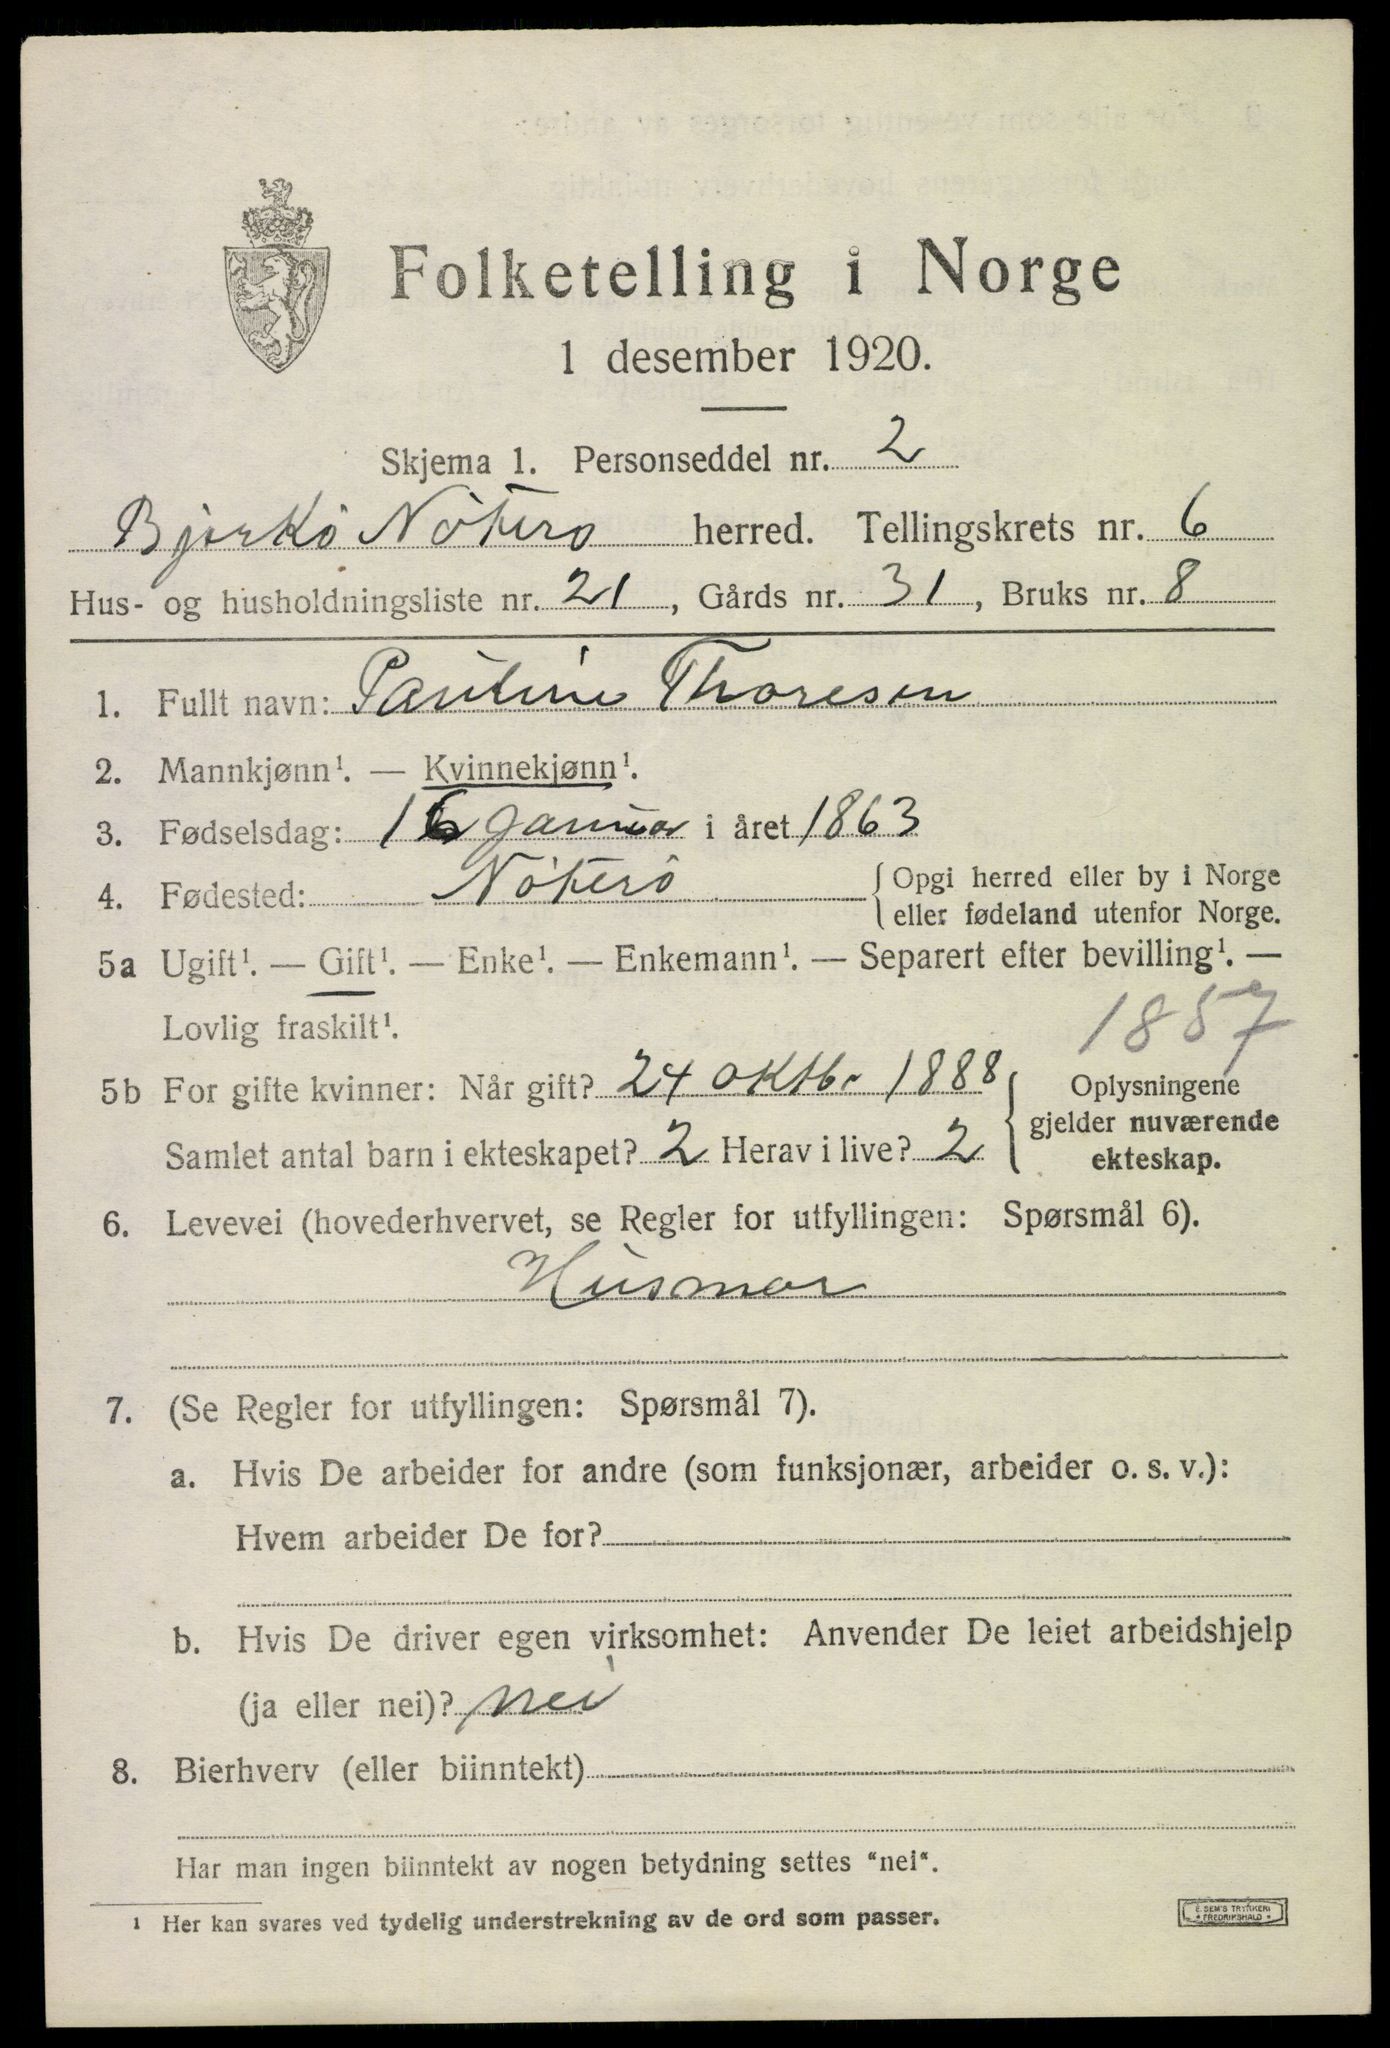 Folketelling i Norge
1 desember 1920.
Skjema 1. Personseddel nr. 2
Bjerkö Nöterö herred. Tellingskrets nr. 6
Hus- og husholdningsliste nr. 21, Gårds nr. 31, Bruks nr. 8
1. Fullt navn: Pauline Thoresen
2. Mannkjønn¹. — Kvinnekjønn¹.
3. Fødselsdag: 16 Januar i året 1863
4. Fødested: Nöterö {Opgi herred eller by i Norge
eller fødeland utenfor Norge.
5a Ugift¹. — Gift¹. — Enke¹. — Enkemann¹. — Separert efter bevilling¹. —
Lovlig fraskilt¹.
1857
5b For gifte kvinner: Når gift? 24 oktbr 1888 { Oplysningene
gjelder nuværende
Samlet antal barn i ekteskapet? 2 Herav i live? 2 ekteskap.
6. Levevei (hovederhvervet, se Regler for utfyllingen: Spørsmål 6).
Husmor
7. (Se Regler for utfyllingen: Spørsmål 7).
a. Hvis De arbeider for andre (som funksjonær, arbeider o. s. v.):
Hvem arbeider De for?
b. Hvis De driver egen virksomhet: Anvender De leiet arbeidshjelp
(ja eller nei)? nei
8. Bierhverv (eller biinntekt)
Har man ingen biinntekt av nogen betydning settes "nei".
¹ Her kan svares ved tydelig understrekning av de ord som passer.
E. SEM'S TRYKKERI
FREDRIKSHALD